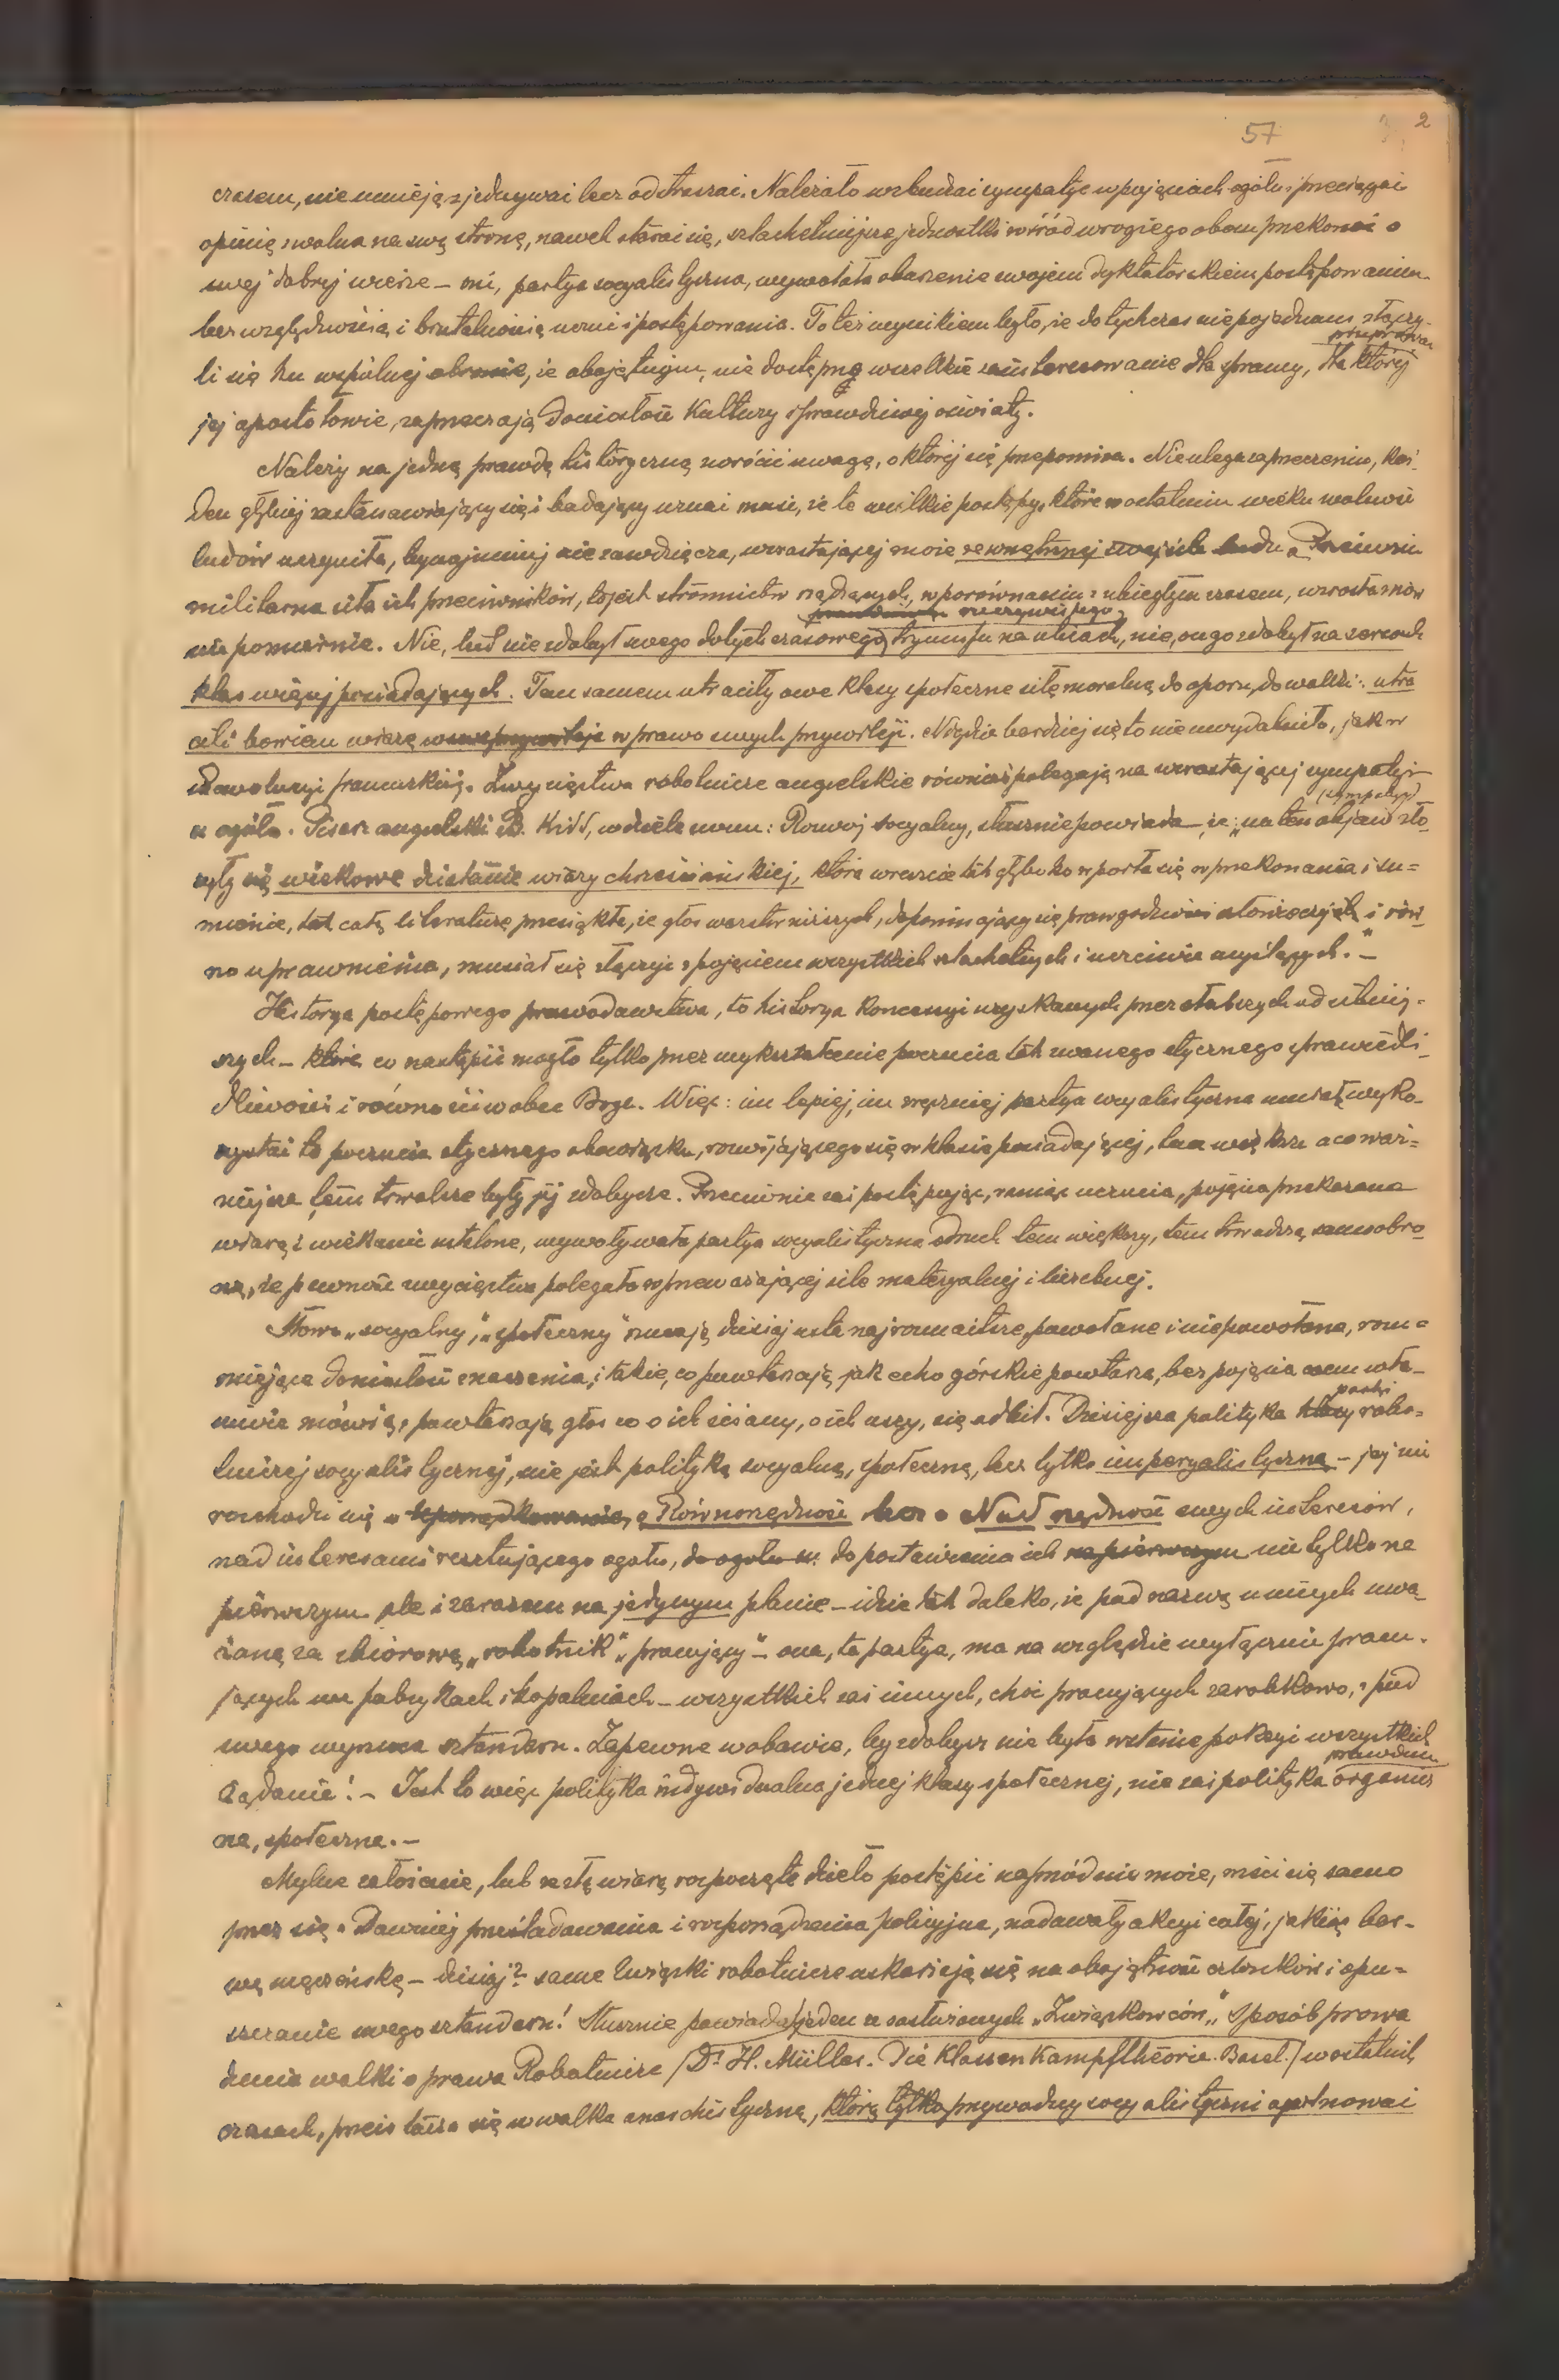 57 2
czasem, nie umieją zjednywać lecz odstraszać. Należało wzbudzać sympatje w pojęciach ogółu i przeciągać
opinię zwolna na swą stronę, nawet starać się, szlachetniejsze jednostki wśród wrogiego obozu przekonać o
swej dobrej wierze – oni, partya socyalistyczna, wywołała oburzenie swojem dyktatorskiem postępowaniem
bezwzględnością i brutalnością i postępowania. Toteż wynikiem było, że dotychczas niepojednani złączy-
li się ku wspólnej obronie, że obojętnym, nie dostępną wszelkie zainteresowanie dla sprawy, dla której
jej apostołowie, zaprzeczają doniosłość kultury i prawdziwej oświaty.
Należy na jedną prawdę historyczną zwrócić uwagę, o której się przepomina. Nie ulega zaprzeczeniu, każ-
den głębiej zastanawiający się i badający uznać musi, że te wielkie postępy, które w ostatnim wieku wolność
ludów uczyniła, bynajmniej nie zawdzięcza, wzrastającej moze zewnętrznej swej sile ludu. Przeciwnie
militarna siła ich przeciwników, to jest stronnictw rządzących, w porównaniu z ubiegłym czasem, wzrosła
niepomiernie. Nie, lud nie zdobył swego dotychczasowego rzeczywistego tryumfu na ulicach, nie, on go zdobył na sercach
klas więcej posiadających. Tem samem utraciły owe klasy społeczne siłę moralną do oporu, do walki: utra
cili bowiem wiarę w prawo swych przywileji. Nigdzie bardziej się to nie uwydatniło, jak w
Rewolucyi francuskiej. Zwycięstwa robotnicze angielskie również polegają na wzrastającej sympatyi
u ogółu. Pisarz angielski B. Kidd, w dziele swem: Rozwój socyalny, słusznie powiada, że „na ten objaw (sympatyi) zło-
żyły się wiekowe działanie wiary chrześciańskiej, która wreszcie tak głęboko wparła się w przekonania i su=
mienie, tak całą literaturę przesiąkła, że głos warstw niższych, dopominający się praw godziwości człowieczych i rów-
no uprawnienia, musiał się złączyć z pojęciem wszystkich szlachetnych i uczciwie myślących." –
Historya postępowego prawodawstwa, to historya koncesyi uzyskanych przez słabszych od silniej=
szych – które co nastąpić mogło tylko przez wykształcenie poczucia tak zwanego etycznego sprawiedli-
dliwości i równości wobec Boga. Więc: im lepiej, im zręczniej partya socyalistyczna umiała wyko-
rzystać to poczucie etycznego obowiązku, rozwijającego się w klasie posiadającej, tem większe a co waż=
niejsze tem trwalsze były jej zdobycze. Przeciwnie zaś postępując, raniąc uczucia, pojęcia przekazane
wiarą i wiekami ustalone, wywoływała partya socyalistyczna odruch tem większy, tem twardszą samoobro-
nę, że pewność zwycięstwa polegała w przeważającej sile materyalnej i liczebnej.
Słowa „socyalny", „społeczny" rzucają dzisiaj usta najrozmaitsze, powołane i niepowołane, rozu=
miejące doniosłość znaczenia, i takie, co powtarzają, jak echo górskie powtarza, bez pojęcia czem wła-
ściwie mówią, powtarzają głos co o ich ściany, o ich uszy, się odbił. Dzisiejsza polityka klasy partyi robo=
tniczej socyalistycznej, nie jest polityką socyalną, społeczną, lecz tylko imperyalistyczną – jej nie
rozchodzi się o Równorzędność lecz o Nad rzędność swych interesów,
nad interesami resztującego ogółu, do postawienia ich na pierwszym nie tylko na
pierwszym ale i zarazem na jedynym planie – idzie tak daleko, że pod nazwą u innych uwa-
żaną za zbiorową „robotnik", „pracujący" – ona, ta partya, ma na względzie wyłącznie pracu-
jących we fabrykach i kopalniach – wszystkich zaś innych, choć pracujących zarobkowo, z pod
swego wyrzuca sztandaru. Zapewne w obawie, by zdobycz nie była w stanie pokryć wszystkich
żądanie! – Jest to więc polityka indywidualna jednej klasy społecznej, nie zaś polityka prawdziwie organicz
na, społeczna. –
Mylne założenie, lub ze złą wiarą rozpoczęte dzieło postąpić naprzód nie może, mści się samo
przez się. Dawniej prześladowania i rozporządzenia policyjne, nadawały akcyi całej, jakiąś bar-
wę męczeńską – dzisiaj? same związki robotnicze uskarżają się na obojętność członków i opu=
szczanie swego sztandaru! Słusznie powiada jeden ze zasłużonych „Związkowców" „Sposób prowa
dzenia walki o prawa Robotnicze (Dr H. Müller. Die Klassen Kampftheorie. Basel.) w ostatnich
czasach, przeistacza się w walkę anarchistyczną, którą tylko przywódcy socyalistyczni opanować